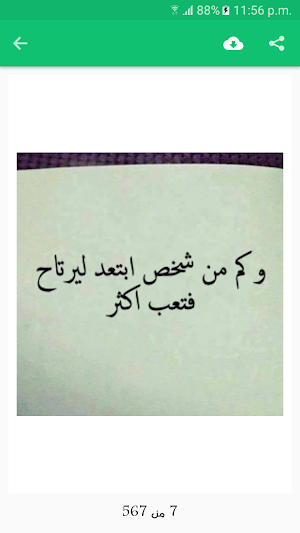 88% 11:56 p.m.
و كم من شخص ابتعد ليرتاح
فتعب اكثر
7 من 567